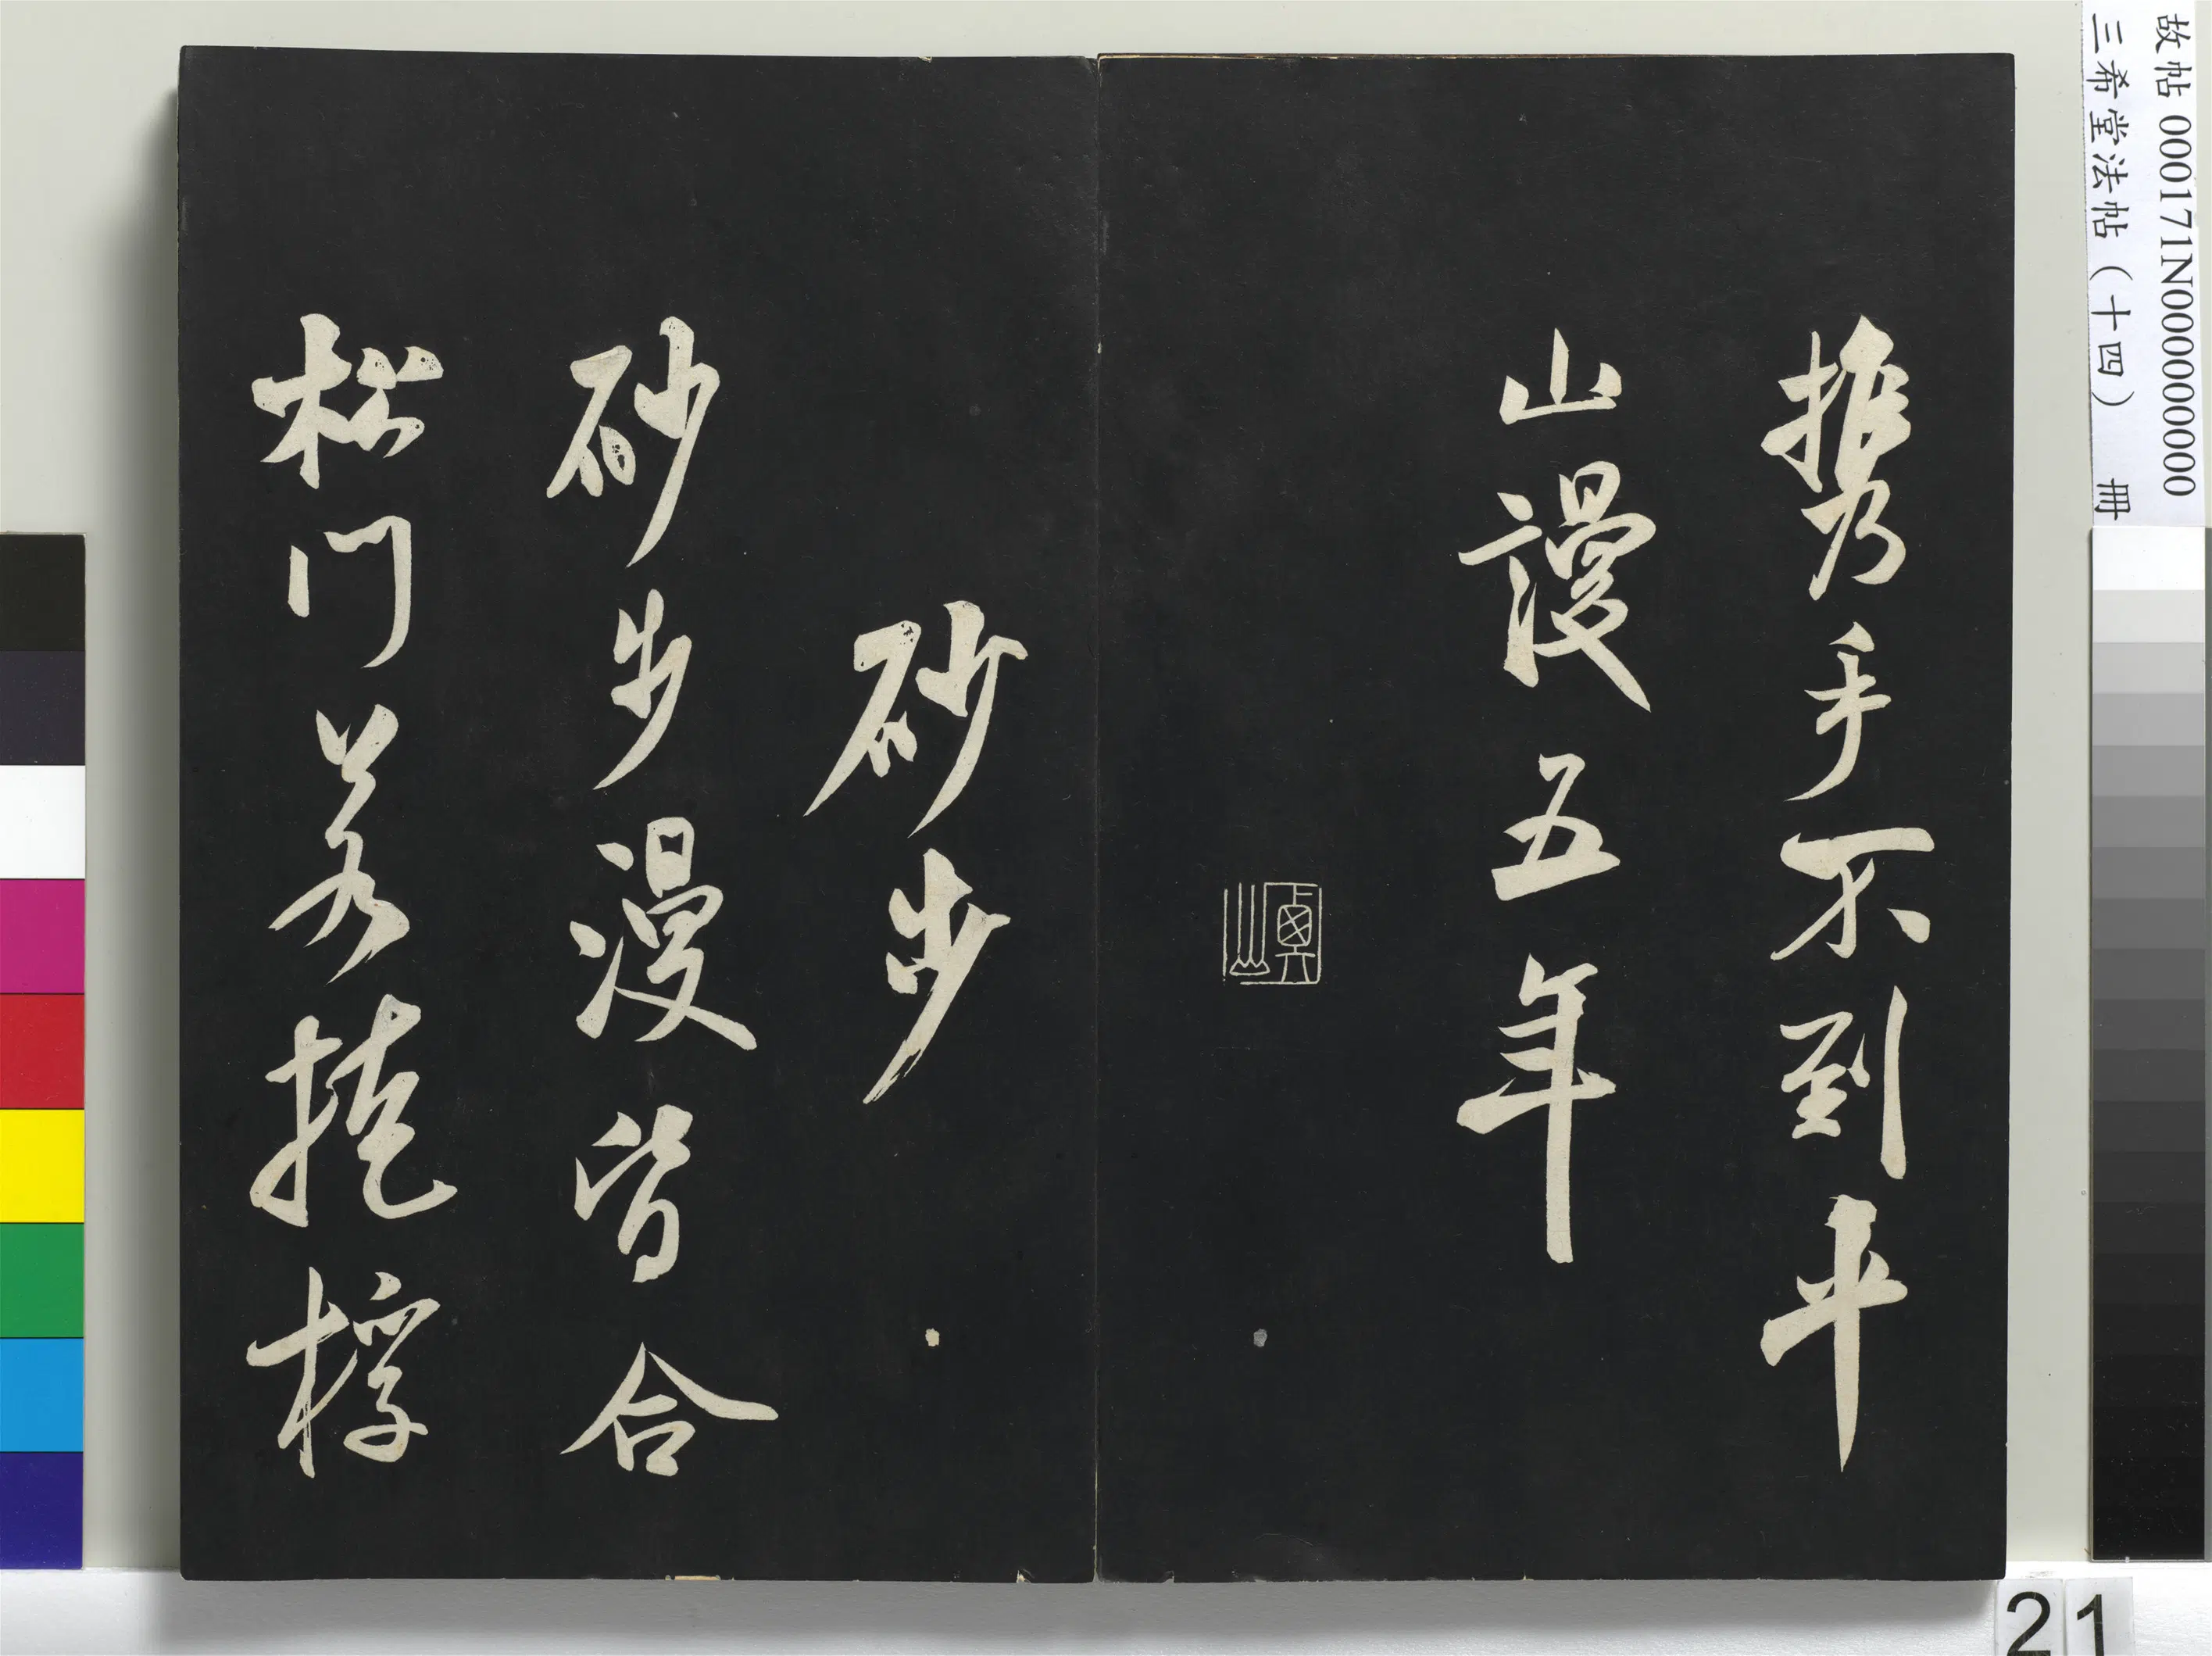 故帖 000171N000000000
三希堂法帖（十四） 冊
攜手不到平
山謾五年
砂步
砂步漫皆合
松門若掩桴
21